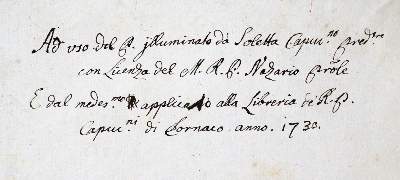 Ad uso del P. illuminato da Soletta Capuc.no Pred.re
con Licenza del M. R. P. Nazario Pro͞le
E dal medes.mo applicato alla Libreria de R. P.
Capuc.ni di Lornaco anno. 1730.